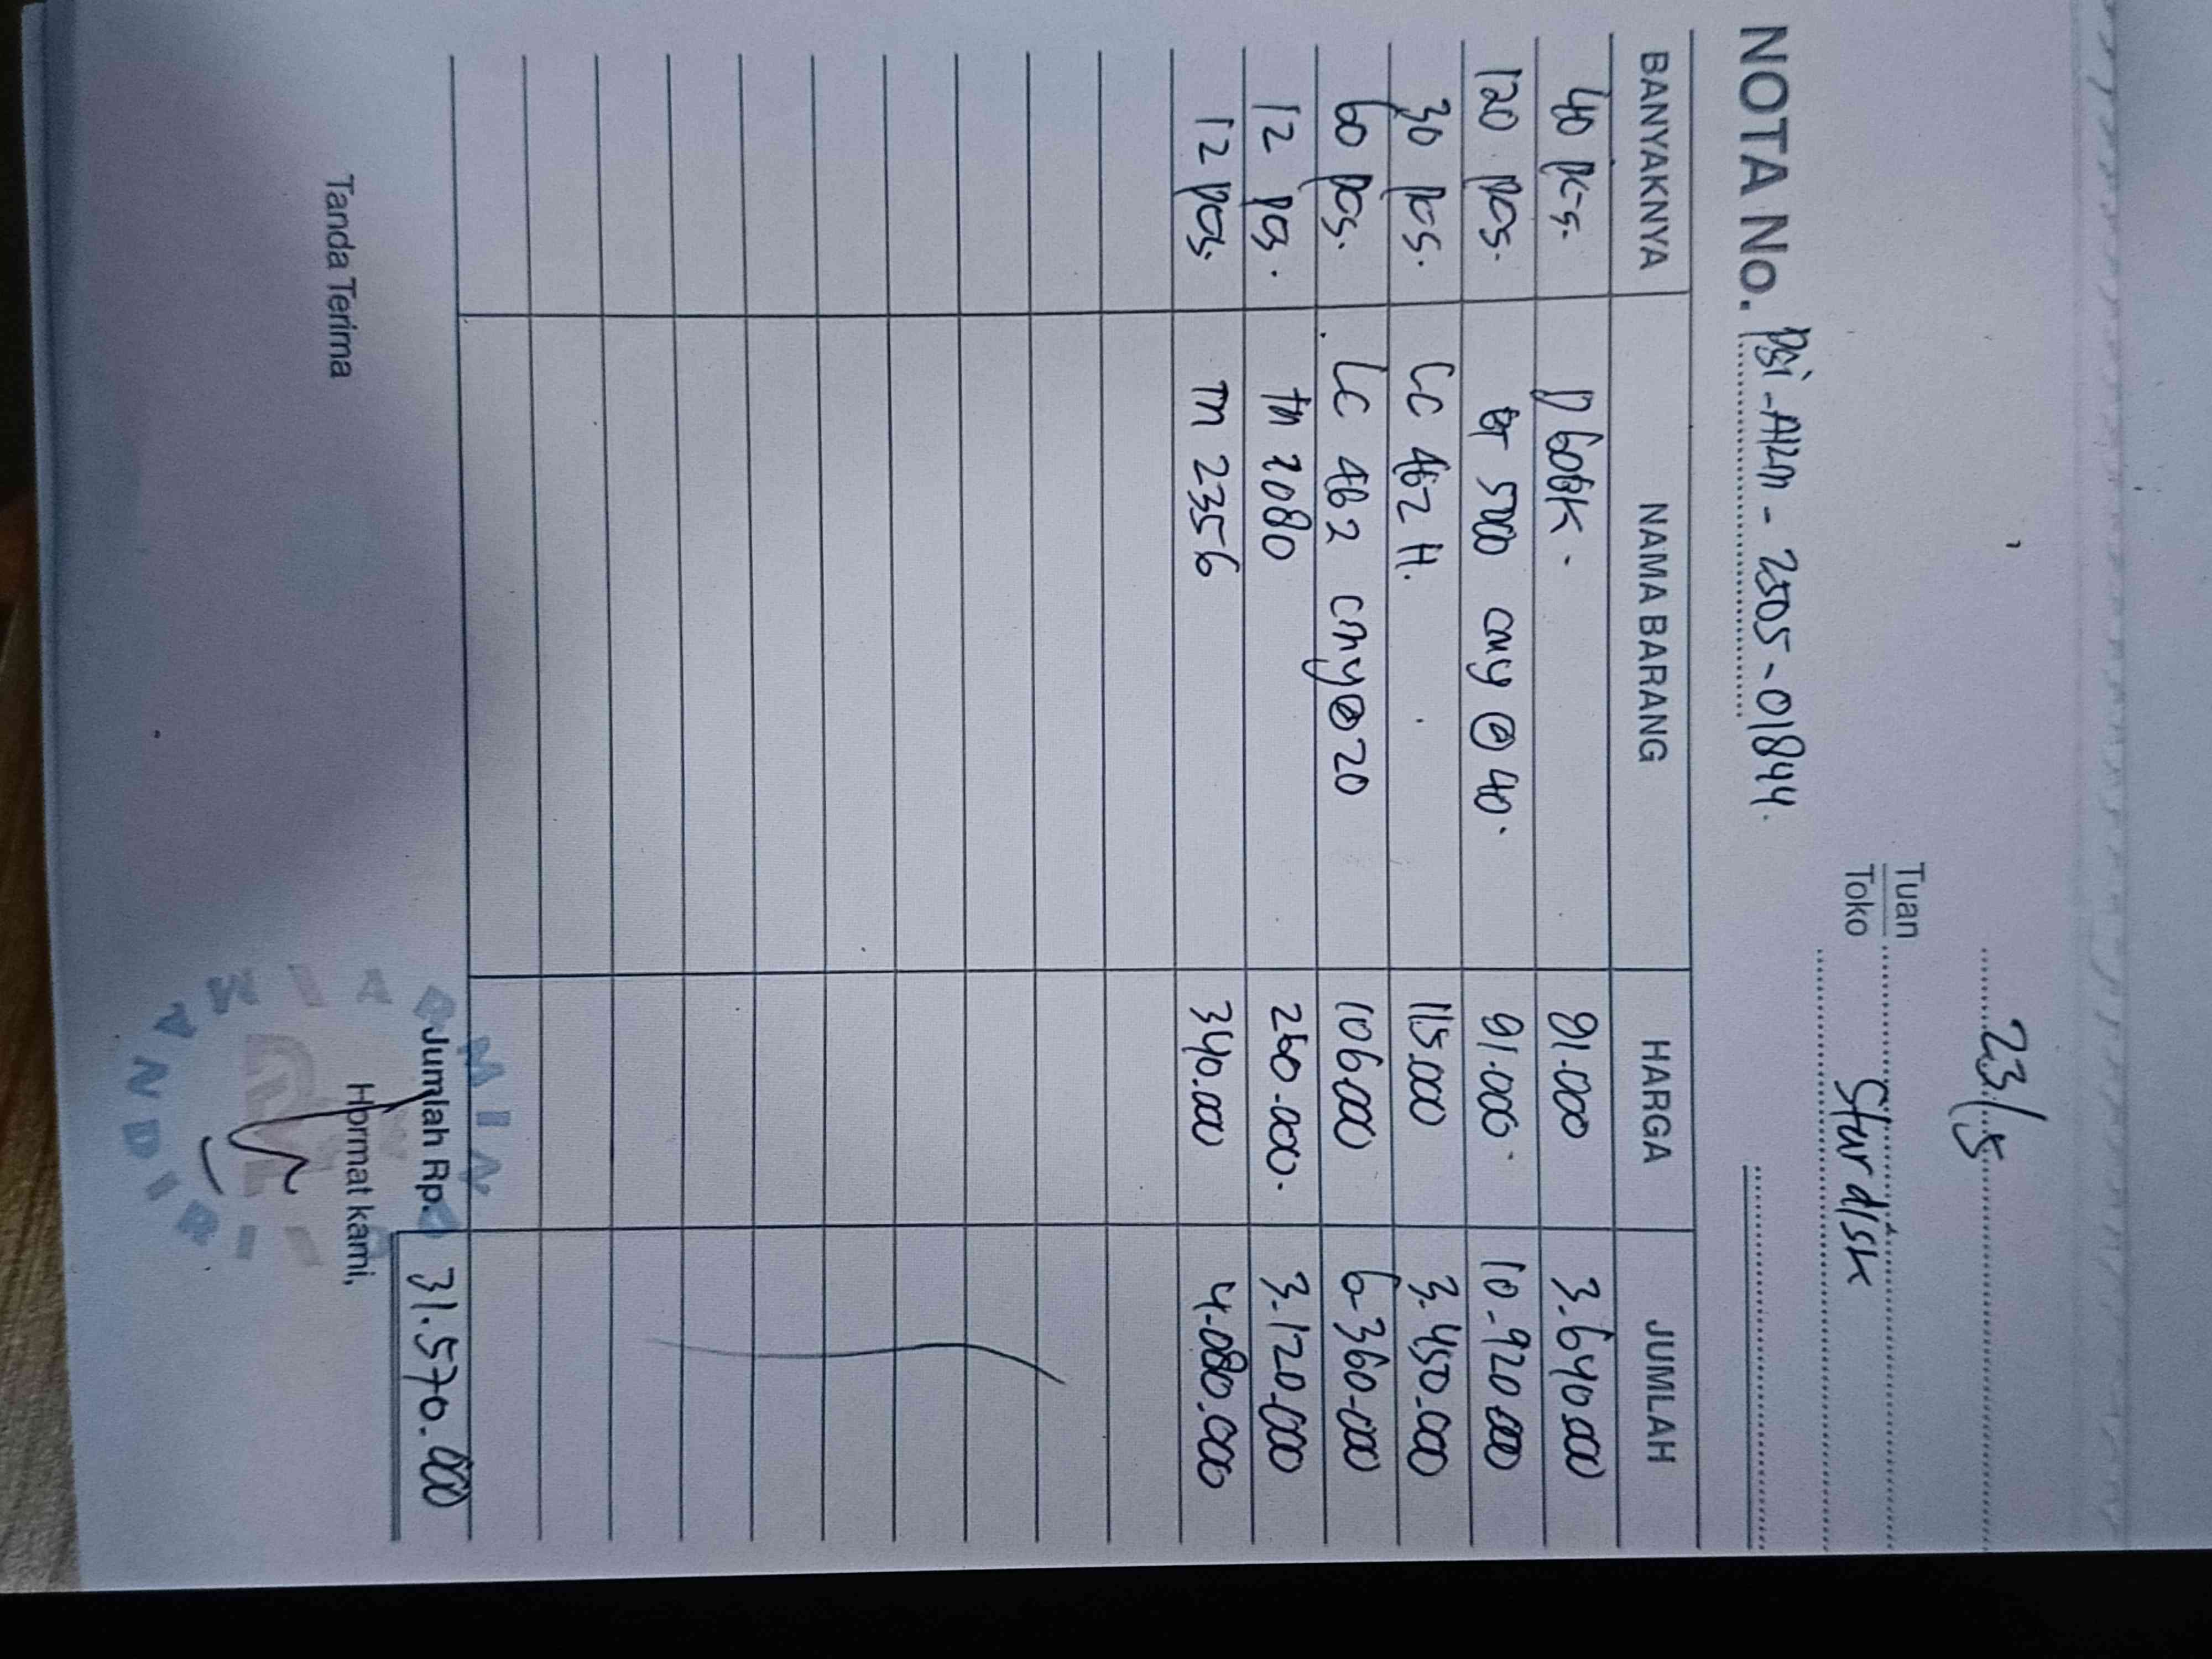 23/5
Tuan
Toko Stardisk
NOTA No. PSi-AHM-2505-01844.
BANYAKNYA NAMA BARANG HARGA JUMLAH
40 pcs. D60BK. 91.000 3.640.000
120 pcs. BT 5000 cmy @ 40. 91.000. 10.920.000
30 pcs. LC 462 H. 115.000 3.450.000
60 pcs. LC 462 cmy @ 20 106.000 6.360.000
12 pcs. TN 2080 260.000. 3.120.000
12 pcs. TN 2356 340.000 4.080.000
Jumlah Rp. 31.570.000
Tanda Terima Hormat kami,
MANDIRI